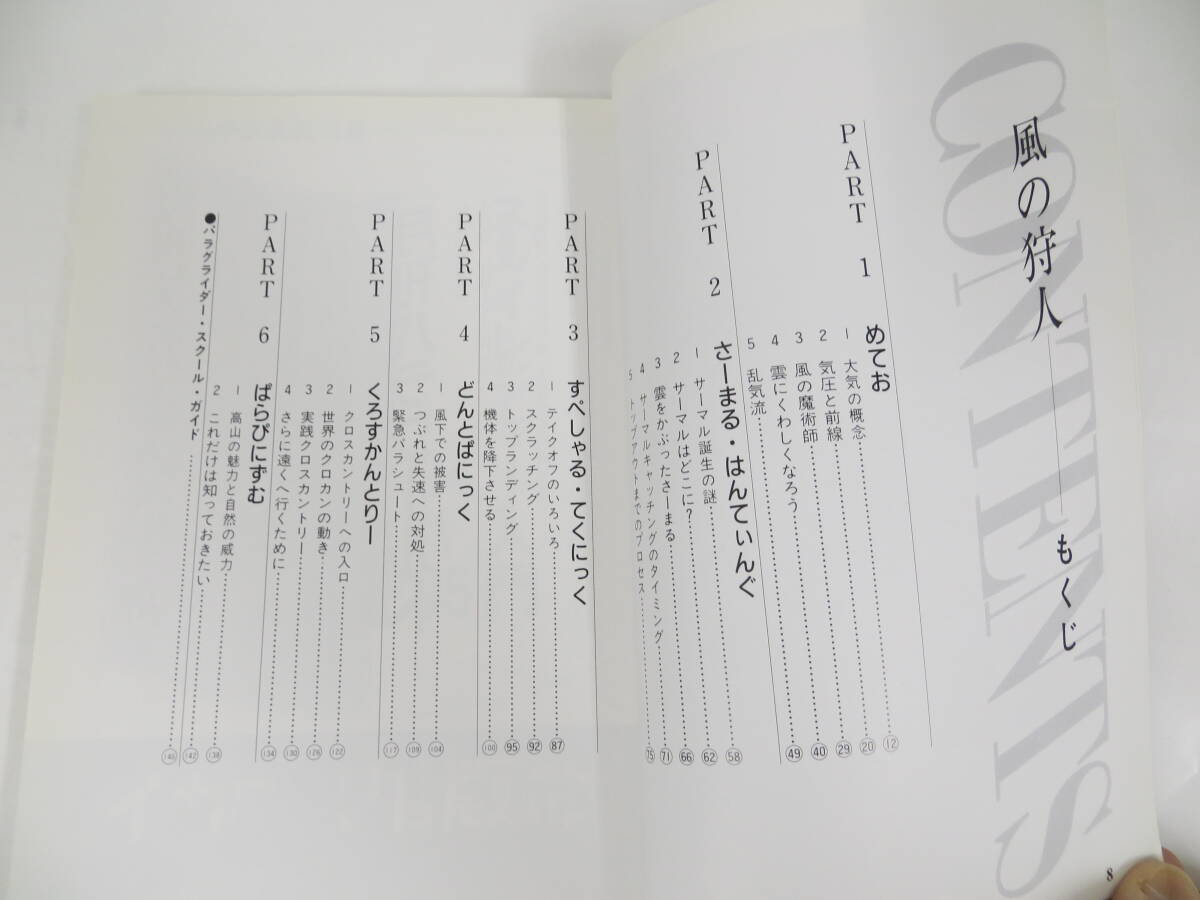 CONTENTS
風の狩人――もくじ
PART 1 めてお
1 大気の概念……⑫
2 気圧と前線……⑳
3 風の魔術師……㉙
4 雲にくわしくなろう……㊵
5 乱気流……㊾
PART 2 さーまる・はんてぃんぐ
1 サーマル誕生の謎……58
2 サーマルはどこに?……62
3 雲をかぶったさーまる……66
4 サーマルキャッチングのタイミング……71
5 トップアウトまでのプロセス……75
PART 3 すぺしゃる・てくにっく
1 テイクオフのいろいろ……87
2 スクラッチング……92
3 トップランディング……95
4 機体を降下させる……100
PART 4 どんとぱにっく
1 風下での被害……104
2 つぶれと失速への対処……109
3 緊急パラシュート……117
PART 5 くろすかんとりー
1 クロスカントリーへの入口……122
2 世界のクロカンの動き……126
3 実践クロスカントリー……130
4 さらに遠くへ行くために……134
PART 6 ぱらぴにずむ
1 高山の魅力と自然の威力……138
2 これだけは知っておきたい……142
●パラグライダー・スクール・ガイド……146
8